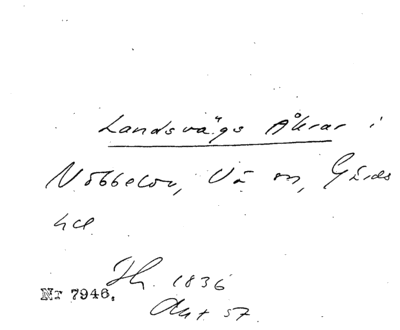 Landsvägs Åkrar i
Nöbbelöv, Vä sn, Gärds
hd
Sk. 1836
Nr 7946.
Akt 57.